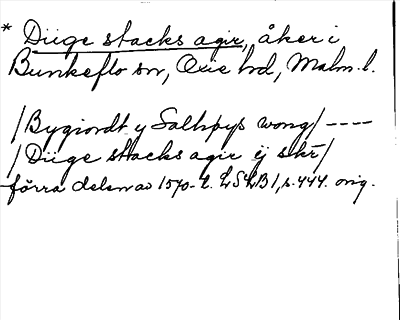 * Diige stacks agir, åker i
Bunkeflo sn, Oxie hd, Malm. l.
/Bygiordt y Salhpys wong/ ----
/Diige stacks agir ij skr/
förra delen av 1570-t. LSLB1, s. 444. orig.